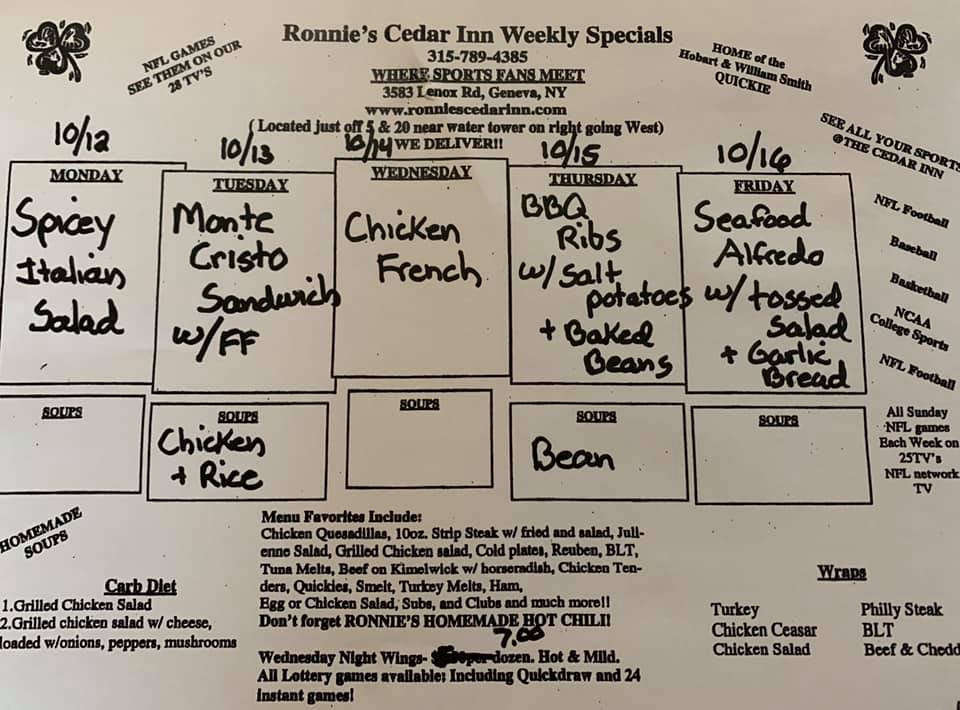 Ronnie's Cedar Inn Weekly Specials
315-789-4385
WHERE SPORTS FANS MEET
3583 Lenox Rd, Geneva, NY
www.ronniescedarinn.com
(Located just off 5 & 20 near water tower on right going West)
WE DELIVER!!
NFL GAMES
SEE THEM ON OUR
28 TV'S
HOME of the
Hobart & William Smith
QUICKIE
SEE ALL YOUR SPORTS
@THE CEDAR INN
NFL Football
Baseball
Basketball
NCAA
College Sports
NFL Football
All Sunday
NFL games
Each Week on
25TV's
NFL network
TV
10/12
MONDAY
Spicey
Italian
Salad
SOUPS
10/13
TUESDAY
Monte
Cristo
Sandwich
w/FF
SOUPS
Chicken
+ Rice
10/14
WEDNESDAY
Chicken
French
SOUPS
10/15
THURSDAY
BBQ
Ribs
w/salt
potatoes
+ Baked
Beans
SOUPS
Bean
10/16
FRIDAY
Seafood
Alfredo
w/tossed
Salad
+ Garlic
Bread
SOUPS
HOMEMADE
SOUPS
Carb Diet
1.Grilled Chicken Salad
2.Grilled chicken salad w/ cheese,
loaded w/onions, peppers, mushrooms
Menu Favorites Include:
Chicken Quesadillas, 10oz. Strip Steak w/ fried and salad, Juli-
enne Salad, Grilled Chicken salad, Cold plates, Reuben, BLT,
Tuna Melts, Beef on Kimelwick w/ horseradish, Chicken Ten-
ders, Quickies, Smelt, Turkey Melts, Ham,
Egg or Chicken Salad, Subs, and Clubs and much more!!
Don't forget RONNIE'S HOMEMADE HOT CHILI!
7.00
Wednesday Night Wings- per dozen. Hot & Mild.
All Lottery games available; Including Quickdraw and 24
instant games!
Wraps
Turkey Philly Steak
Chicken Ceasar BLT
Chicken Salad Beef & Chedd